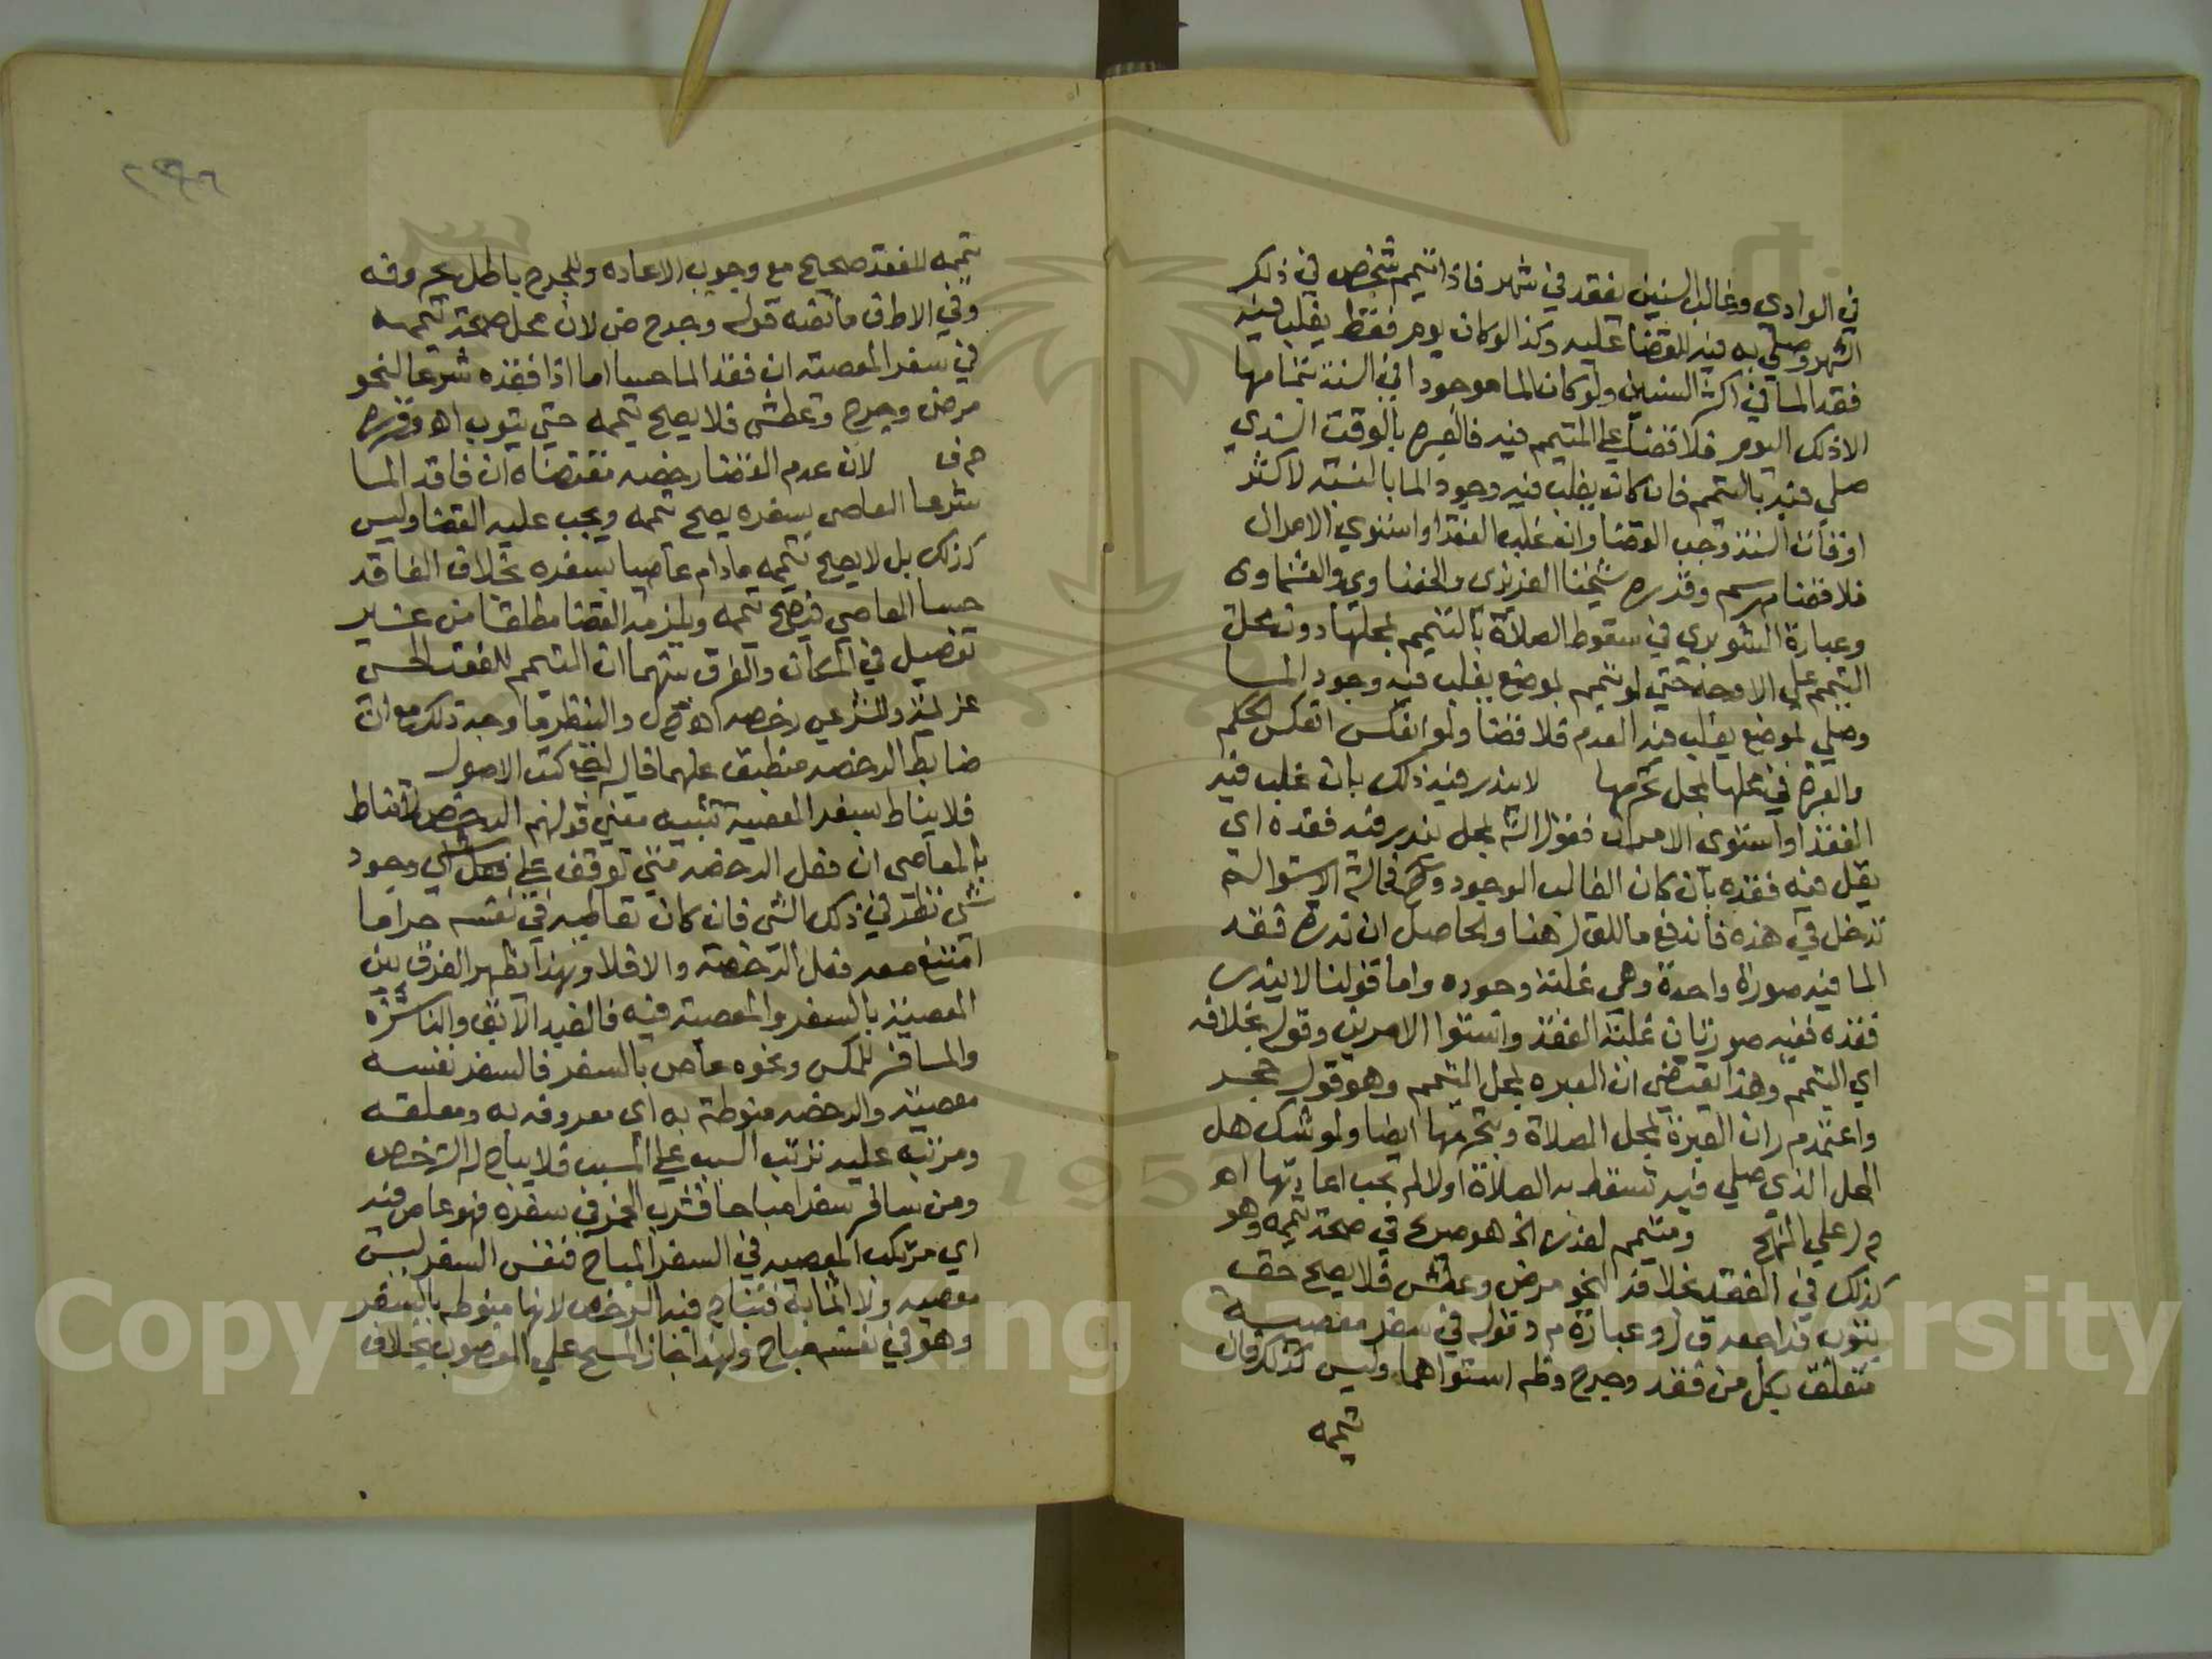 في الوادي وغالب السنين يفقد في شهر فاذا تيمم شخص في ذلك
الشهر وصلي به فيه لاقضا عليه وكذا لو كان يوم فقط يغلب فيه
فقد الما في اكثر السنين ولو كان الما موجودا في السنة بتمامها
الا ذلك اليوم فلا قضا علي المتيمم فيه فالعبرة بالوقت الذي
صلي فيه بالتيمم فان كان يغلب فيه وجود الما بالنسبة لاكثر
اوقات السنة وجب القضا وان غلب الفقد او استوي الامران
فلا قضا وقرره شيخنا العزيزي والحفناوي والعشماوي
وعبارة الشوبري في سقوط الصلاة بالتيمم بمحلها دون محل
التيمم علي الاوجه حتي لو تيمم بموضع يغلب فيه وجود الما
وصلي بموضع يغلب فيه العدم فلا قضا ولو انعكس انعكس الحكم
والعبرة في محلها بمحل تحرمها لا يندر فيه ذلك بان غلب فيه
الفقد او استوي الامران فقول الش بمحل يندر فيه فقده اي
يقل فيه فقده بان كان الغالب الوجود فحالة الاستوا لم
تدخل في هذه فاندفع ما للق ل هنا والحاصل ان ندرة فقد
الما فيه صورة واحدة وهي غلبة وجوده واما قولنا لا يندر
فقده ففيه صورتان غلبة الفقد واستوا الامرين وقوله بخلافه
اي التيمم وهذا يقتضي ان العبرة بمحل التيمم وهو قول حجر
واعتمد م ر ان العبرة بمحل الصلاة وبتحرمها ايضا ولو شك هل
المحل الذي صلي فيه تسقط به الصلاة اولا لم تجب اعادتها اه
م ر علي المنهج ومتيمم لعذر الخ هو صريح في صحة تيممه وهو
كذلك في الفقد بخلافه لنحو مرض وعطش فلا يصح حتي
يتوب ق ل وعبارة م د قوله في سفر معصية
متعلق بكل من فقد وجرح وظ استواهما وليس كذلك فان
تيممه
تيممه للفقد صحيح مع وجوب الاعاده وللجرح باطل بحروفه
وفي الاطف ما نصه قوله وجرح ض لان محل صحة تيممه
في سفر المعصية ان فقد الما حسا اما اذا فقده شرعا لنحو
مرض وجرح وعطش فلا يصح تيممه حتي يتوب اه وقرره
ح ف لان عدم القضا رخصه مقتضاه ان فاقد الما
شرعا العاصي بسفره يصح تيممه ويجب عليه القضا وليس
كذلك بل لا يصح تيممه مادام عاصيا بسفره بخلاف الفاقد
حسا العاصي فيصح تيممه ويلزمه القضا مطلقا من غير
تفصيل في المكان والفرق بينهما ان التيمم للفقد الحسي
عزيمة وللشرعي رخصه اه وانظر ما وجه ذلك مع ان
ضابط الرخصه منطبق عليهما قاله كتب الاصول
فلا يناط بسفر المعصية تنبيه معني قولهم الرخص لا تناط
بالمعاصي ان فعل الرخصه متي توقف علي وجود
شي نظر في ذلك الشي فان كان تعاطيه في نفسه حراما
امتنع معه فعل الرخصه والا فلا وبهذا يظهر الفرق بين
المعصية بالسفر والمعصية فيه فالعبد الابق والناشزة
والمسافر للمكس ونحوه عاص بالسفر فالسفر نفسه
معصية والرخصه منوطة به اي معروفه به ومعلقه
ومرتبه عليه ترتب السبب علي المسبب فلا يباح له الترخص
ومن سافر سفرا مباحا فشرب الخمر في سفره فهو عاص فيه
اي مرتكب المعصيه في السفر المباح فنفس السفر ليس
معصيه ولا اثما به فتباح فيه الرخص لانها منوطه بالسفر
وهو في نفسه مباح ولهذا جاز المسح علي المغصوب بخلاف
Copyright © King Saud University
1957